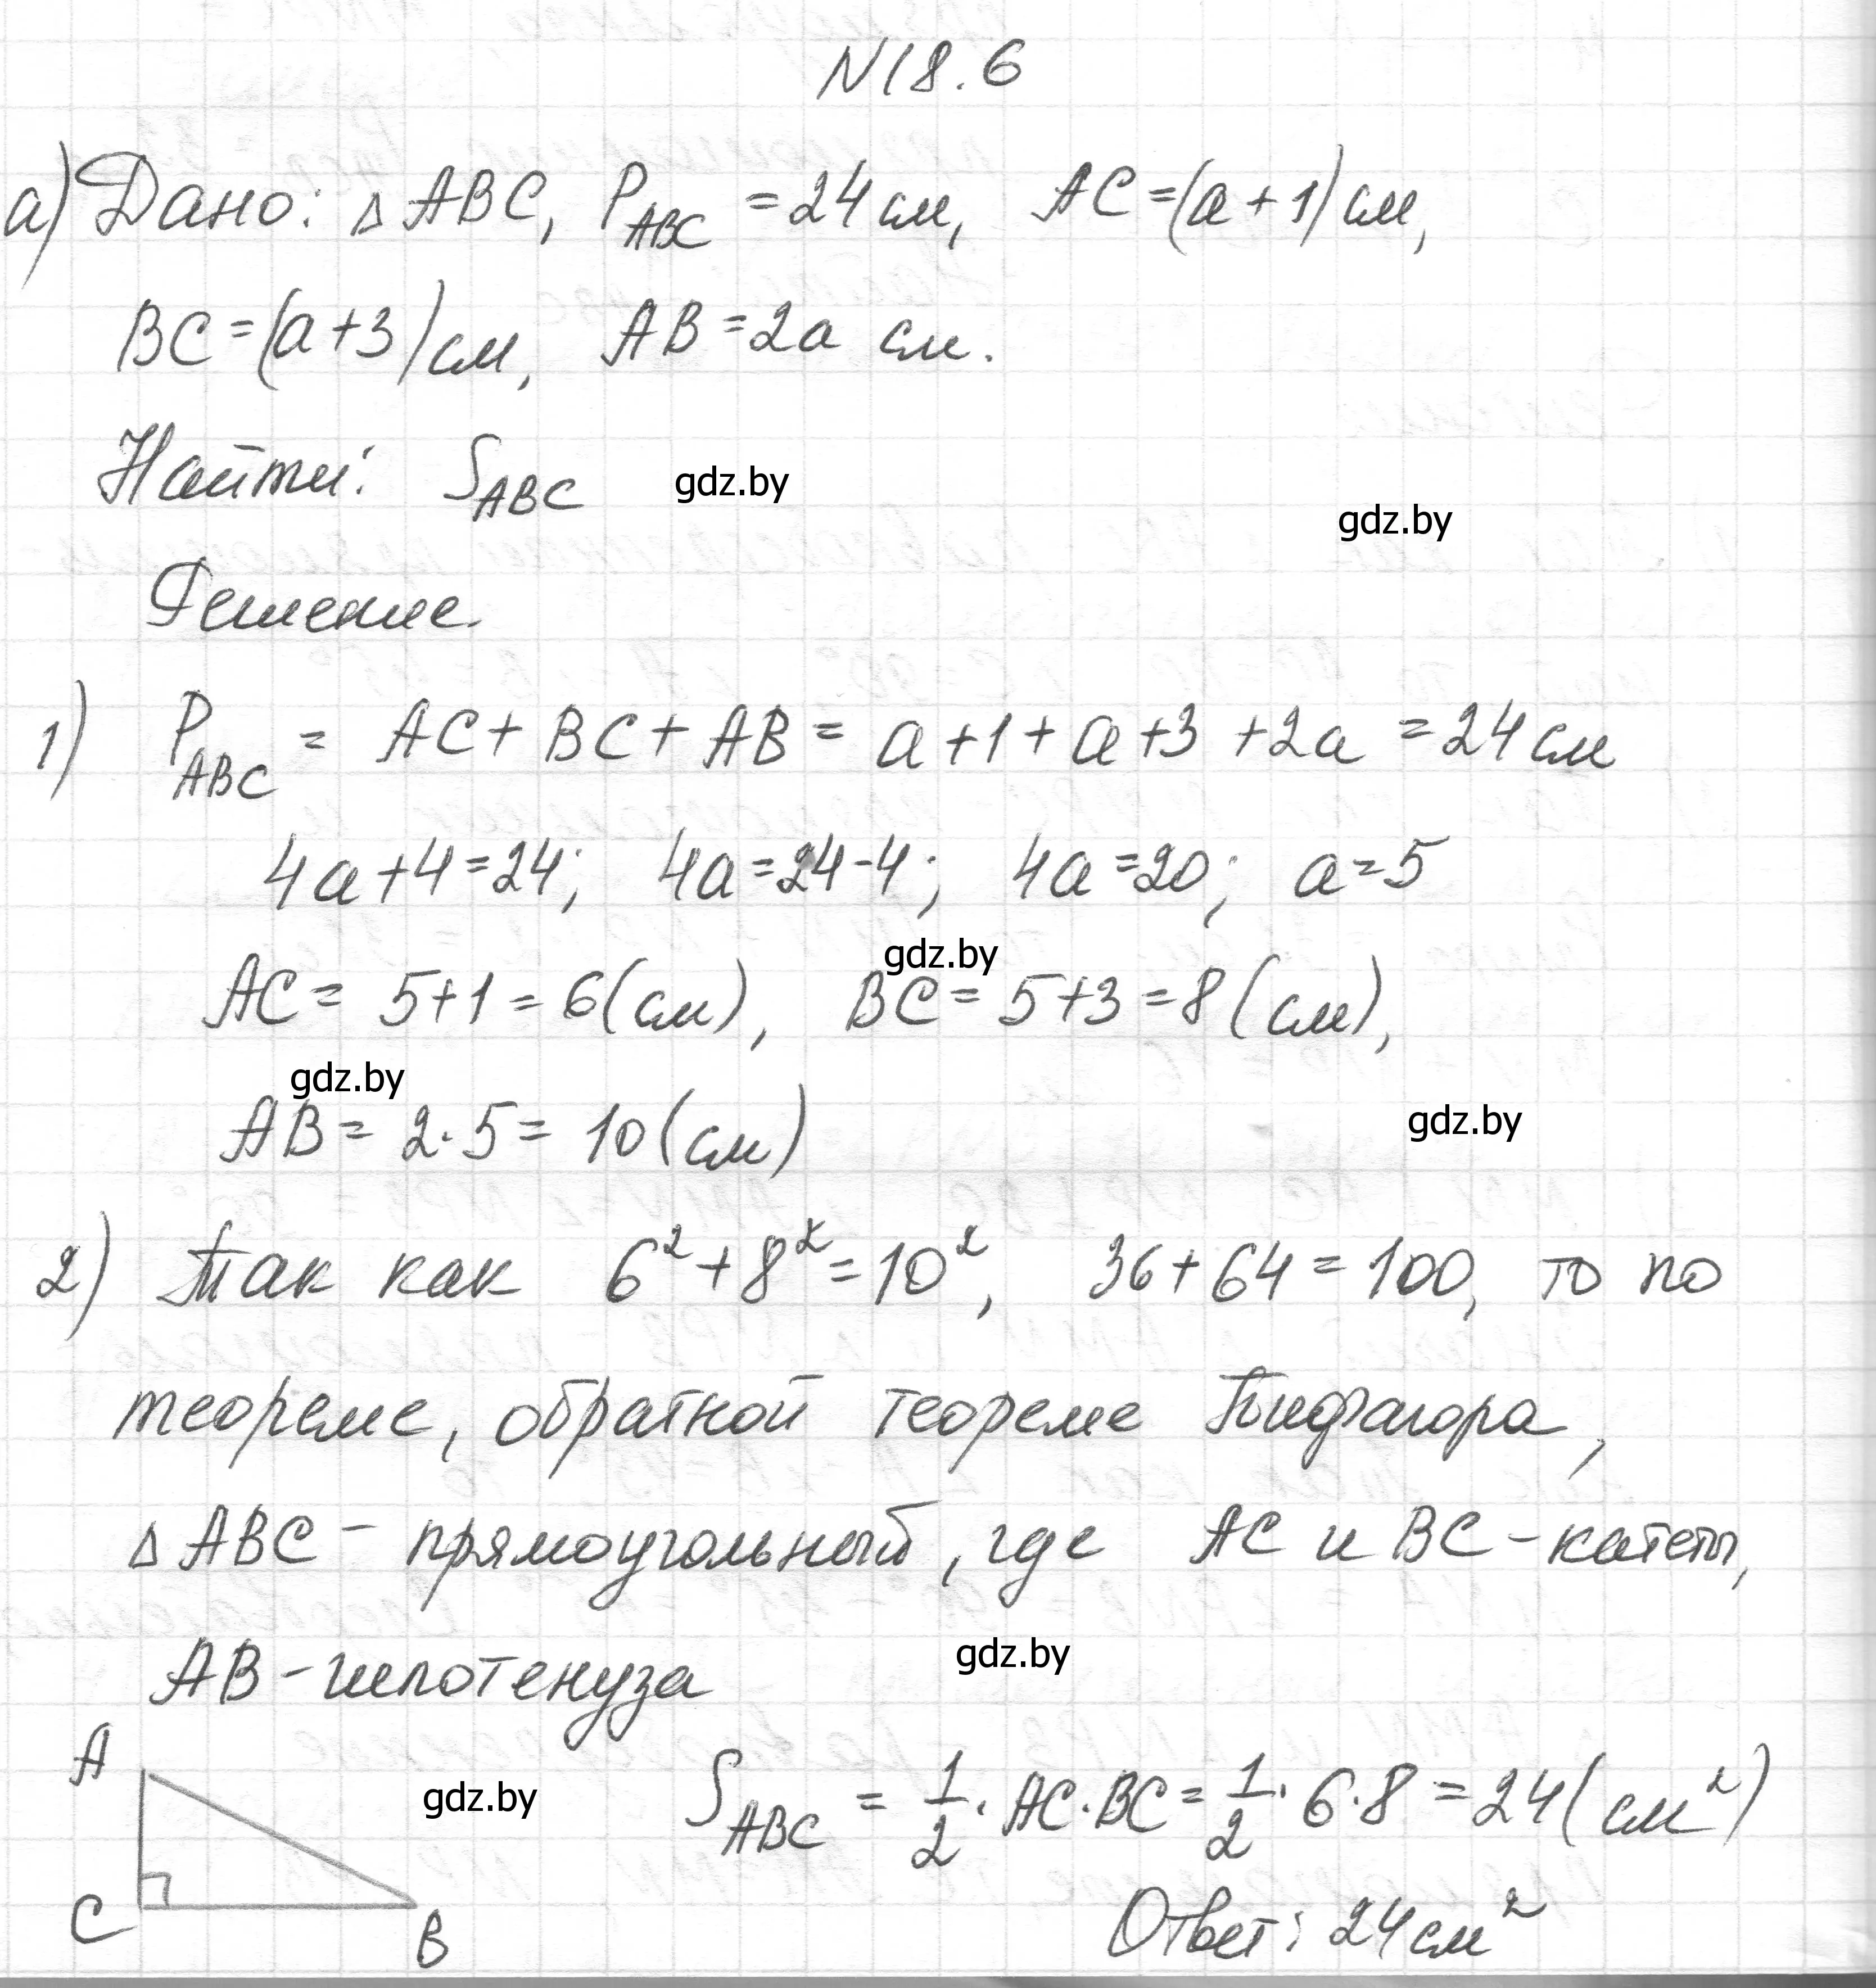 N18.6
а) Дано: △ABC, P_ABC = 24 см, AC = (a + 1) см,
BC = (a + 3) см, AB = 2a см.
Найти: S_ABC
gdz.by
gdz.by
Решение.
1) P_ABC = AC + BC + AB = a + 1 + a + 3 + 2a = 24 см
4a + 4 = 24; 4a = 24 - 4; 4a = 20; a = 5
gdz.by
AC = 5 + 1 = 6 (см), BC = 5 + 3 = 8 (см),
gdz.by
AB = 2 · 5 = 10 (см)
gdz.by
2) Так как 6² + 8² = 10², 36 + 64 = 100, то по
теореме, обратной теореме Пифагора,
△ABC – прямоугольный, где AC и BC – катеты,
AB – гипотенуза
gdz.by
A
gdz.by
S_ABC = 1/2 · AC · BC = 1/2 · 6 · 8 = 24 (см²)
C
B
Ответ: 24 см²